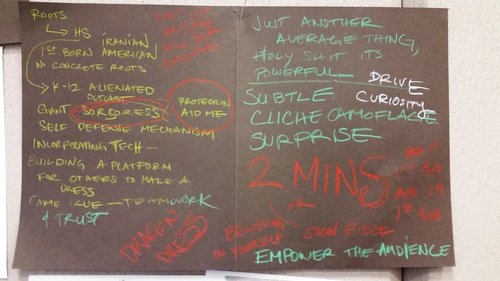 ROOTS
HS IRANIAN
1ST BORN AMERICAN
NO CONCRETE ROOTS
K-12 ALIENATED
OUTCAST
GIANT SORDORESS
PROTECTION
AID ME
SELF DEFENSE MECHANISM
INCORPORATING TECH—
BUILDING A PLATFORM
FOR OTHERS TO MAKE A
DRESS
CAME TRUE — TEAMWORK
& TRUST
DRAGON
DRESS
JUST ANOTHER
AVERAGE THING,
HOLY SHIT ITS
POWERFUL— DRIVE
SUBTLE CURIOSITY
CLICHE CAMOFLAGE
SURPRISE
2 MINS
OR
BELIEVING
IN YOURSELF
EMPOWER THE AUDIENCE